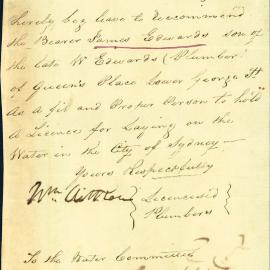 hereby beg leave to recommend
the Bearer James Edwards son of
the late W Edwards (Plumber)
of Queen's Place Lower George St
As a fit and Proper Person to hold
a Licence for Laying on the
Water in the City of Sydney—
Yours Respectfully
Wm
Licencesed
Plumbers
To the Water Committee